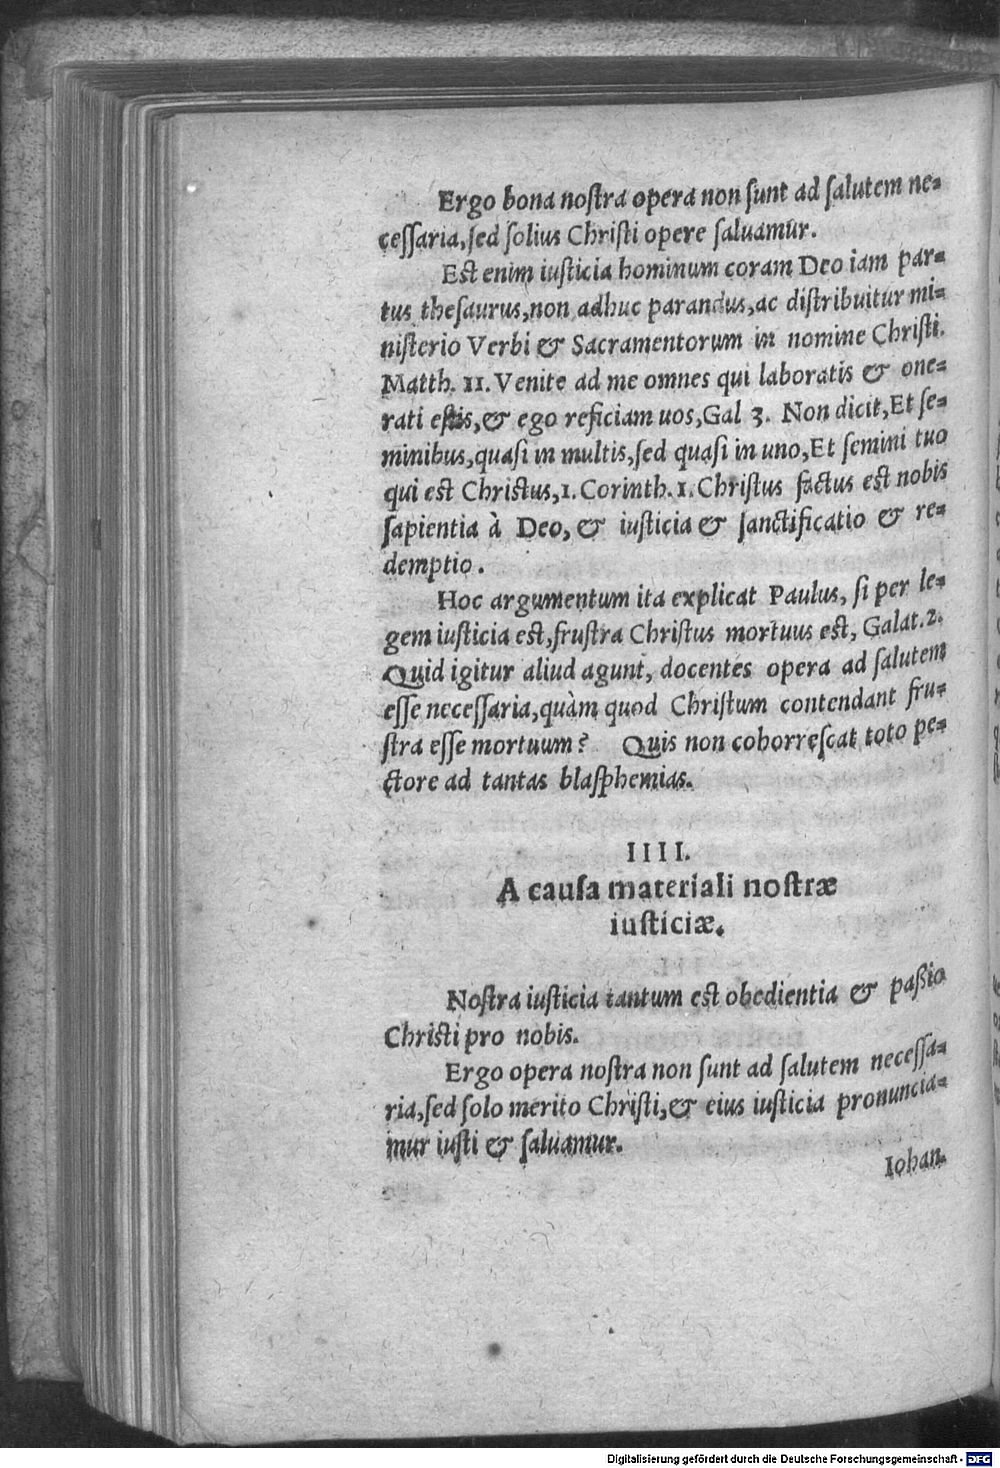 Ergo bona noſtra opera non ſunt ad ſalutem ne=
ceſſaria, ſed ſolius Chriſti opere ſaluamur.
Est enim iuſticia hominum coram Deo iam par=
tus theſaurus, non adhuc parandus, ac diſtribuitur mi=
niſterio Verbi & Sacramentorum in nomine Chriſti.
Matth. 11. Venite ad me omnes qui laboratis & one=
rati estis, & ego reficiam uos, Gal 3. Non dicit, Et ſe=
minibus, quaſi in multis, ſed quaſi in uno, Et ſemini tuo
qui est Christus, 1. Corinth. 1. Chriſtus factus est nobis
ſapientia à Deo, & iuſticia & ſanctificatio & re=
demptio.
Hoc argumentum ita explicat Paulus, ſi per le=
gem iuſticia est, fruſtra Chriſtus mortuus est, Galat. 2.
Quid igitur aliud agunt, docentes opera ad ſalutem
eſſe neceſſaria, quàm quod Chriſtum contendant fru=
ſtra eſſe mortuum? Quis non cohorreſcat toto pe=
ctore ad tantas blaſphemias.
IIII.
A cauſa materiali noſtræ
iuſticiæ.
Noſtra iuſticia tantum est obedientia & paßio
Chriſti pro nobis.
Ergo opera noſtra non ſunt ad ſalutem neceſſa=
ria, ſed ſolo merito Chriſti, & eius iuſticia pronuncia=
mur iuſti & ſaluamur.
Iohan.
Digitalisierung gefördert durch die Deutsche Forschungsgemeinschaft - DFG